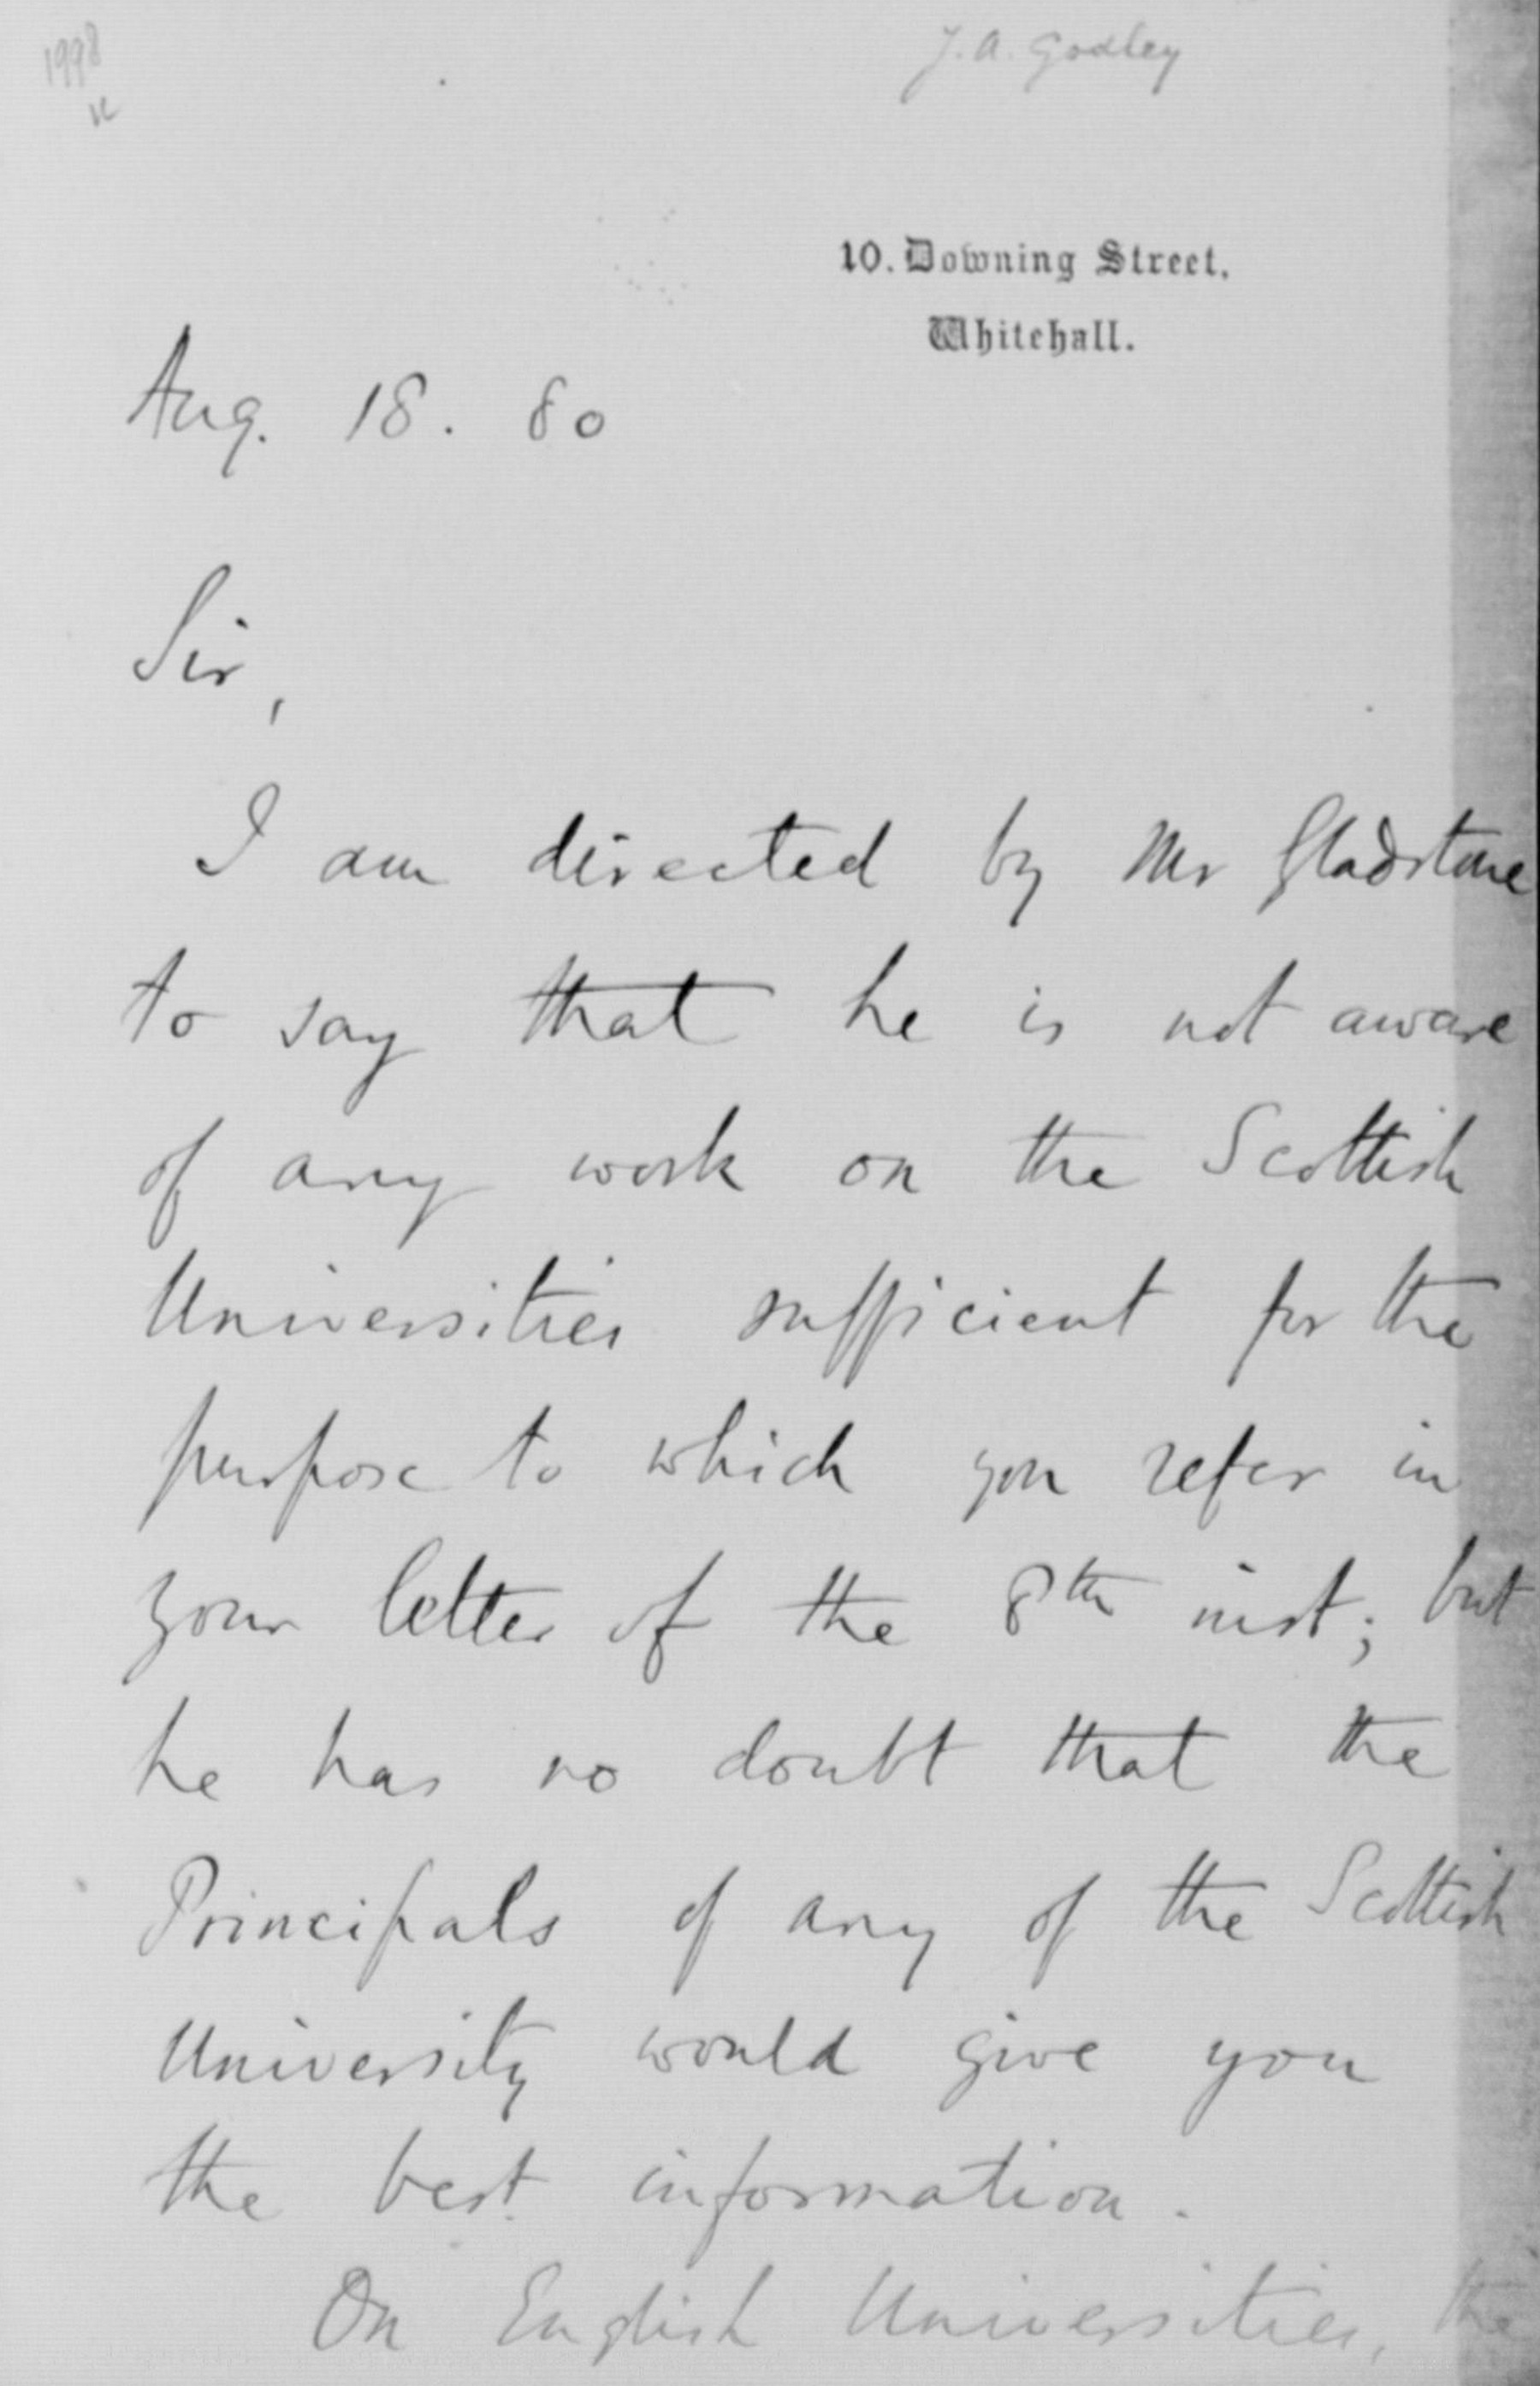 1998
J. A. Godley
10. Downing Street.
Whitehall.
Aug. 18. 80
Sir,
I am directed by Mr Gladstone
to say that he is not aware
of any work on the Scottish
Universities sufficient for the
purpose to which you refer in
your letter of the 8th inst; but
he has no doubt that the
Principals of any of the Scottish
University would give you
the best information.
On English Universities, the